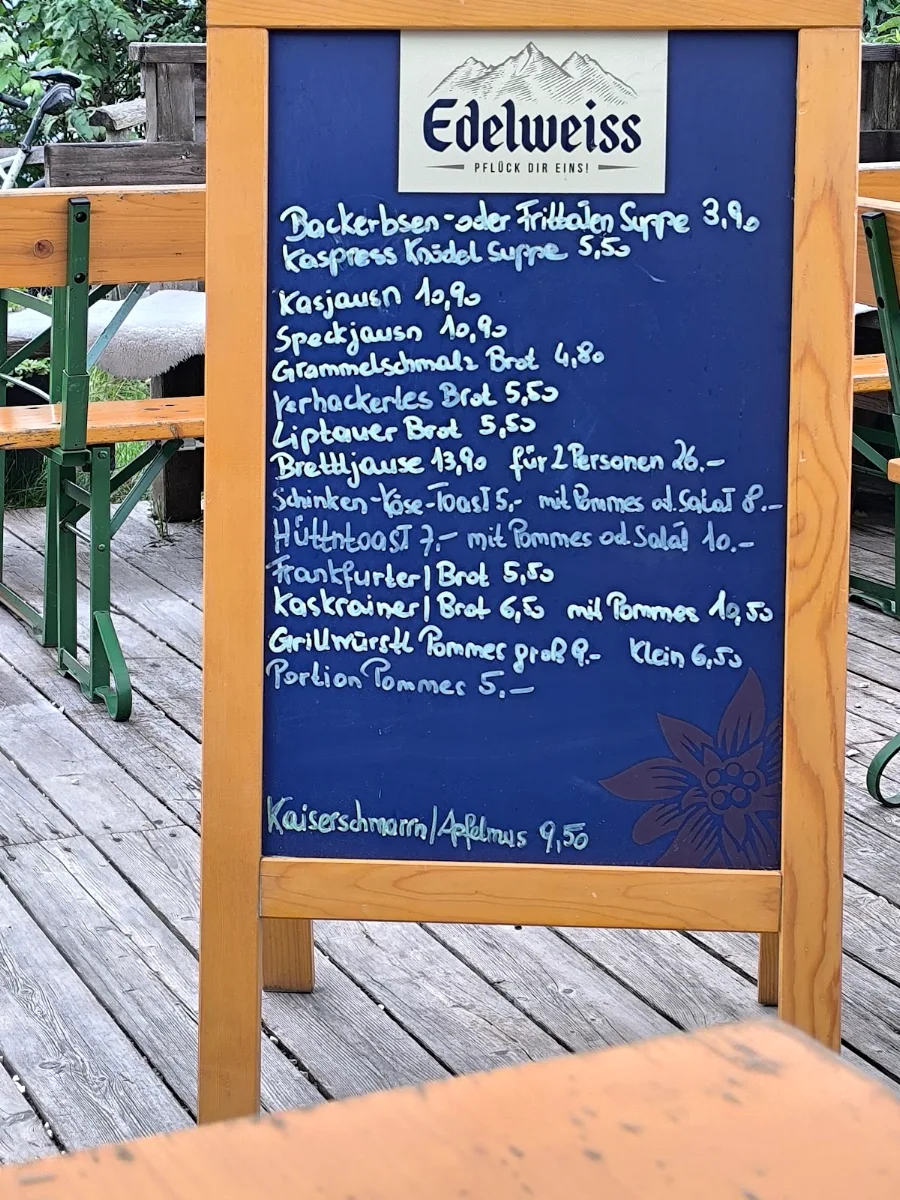 Edelweiss
PFLÜCK DIR EINS!
Backerbsen-oder Frittaten Suppe 3,90
Kaspress Knödel Suppe 5,50
Kasjausn 10,90
Speckjausn 10,90
Grammelschmalz Brot 4,80
Verhackertes Brot 5,50
Liptauer Brot 5,50
Brettljause 13,90 für 2 Personen 26.-
Schinken-Käse-Toast 5,- mit Pommes od. Salat 8.-
Hüttntoast 7,- mit Pommes od. Salat 10.-
Frankfurter | Brot 5,50
Kaskrainer | Brot 6,50 mit Pommes 10,50
Grillwürstl Pommes groß 9.- Klein 6,50
Portion Pommes 5,-
Kaiserschmarrn/Apfelmus 9,50